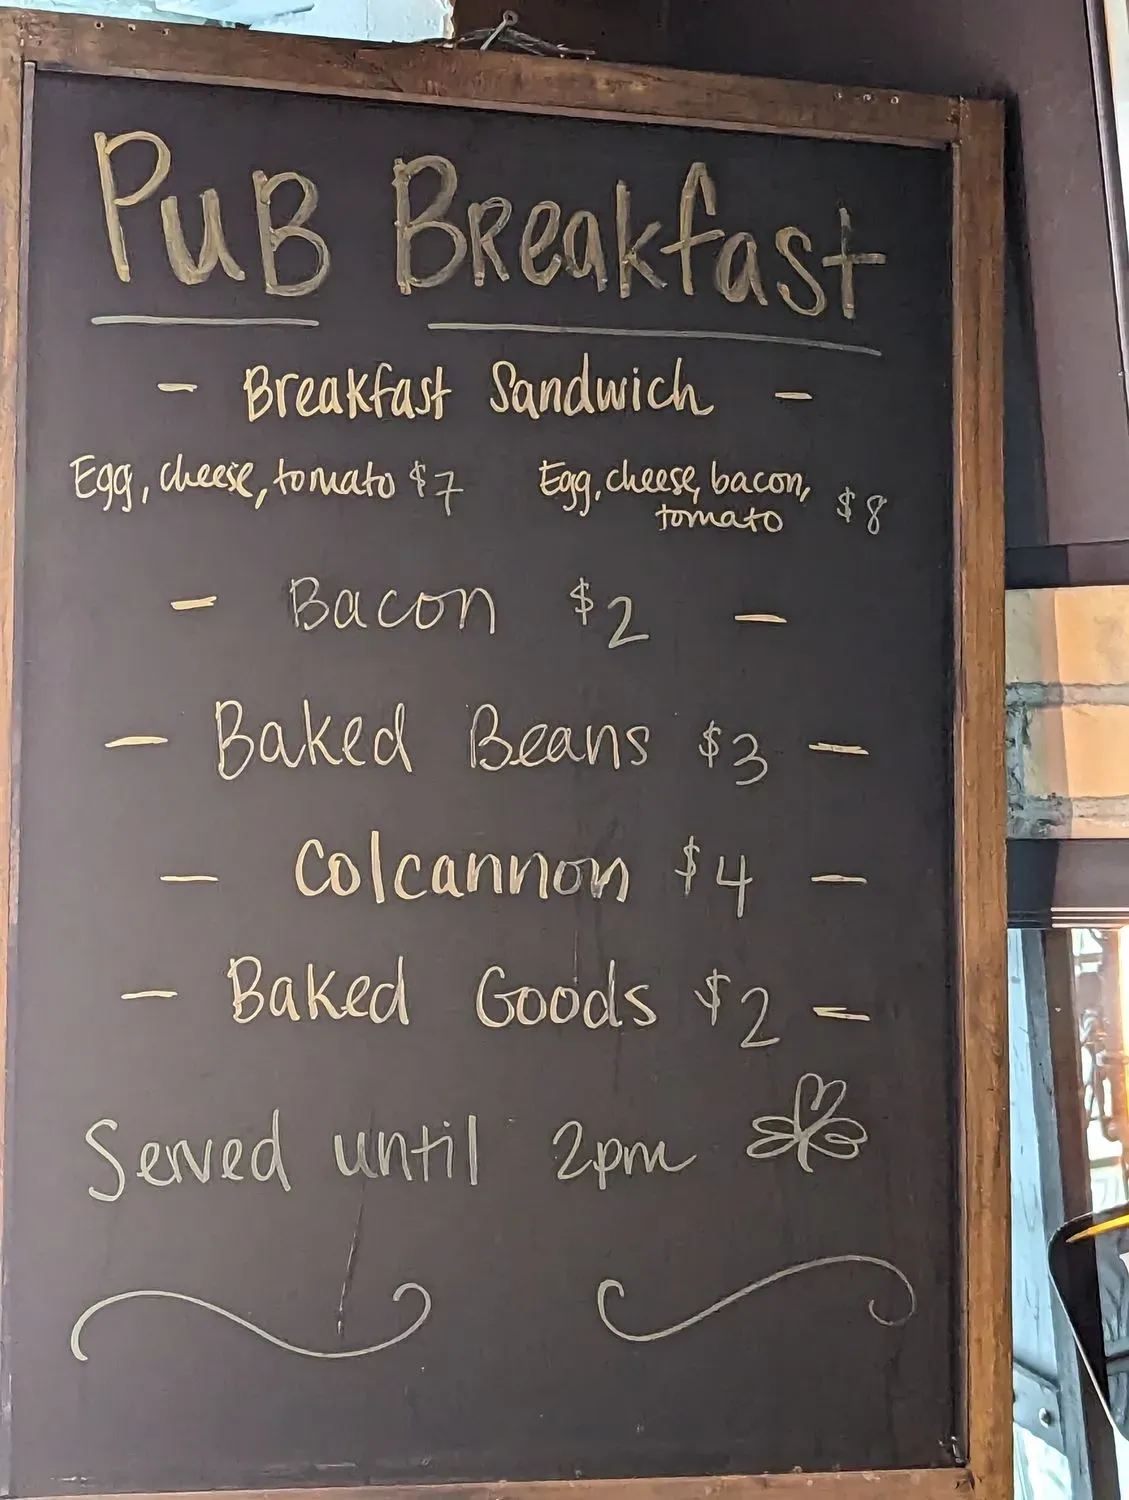 PuB Breakfast
- Breakfast Sandwich -
Egg, cheese, tomato $7
Egg, cheese, bacon, tomato $8
- Bacon $2 -
- Baked Beans $3 -
- Colcannon $4 -
- Baked Goods $2 -
Served until 2pm